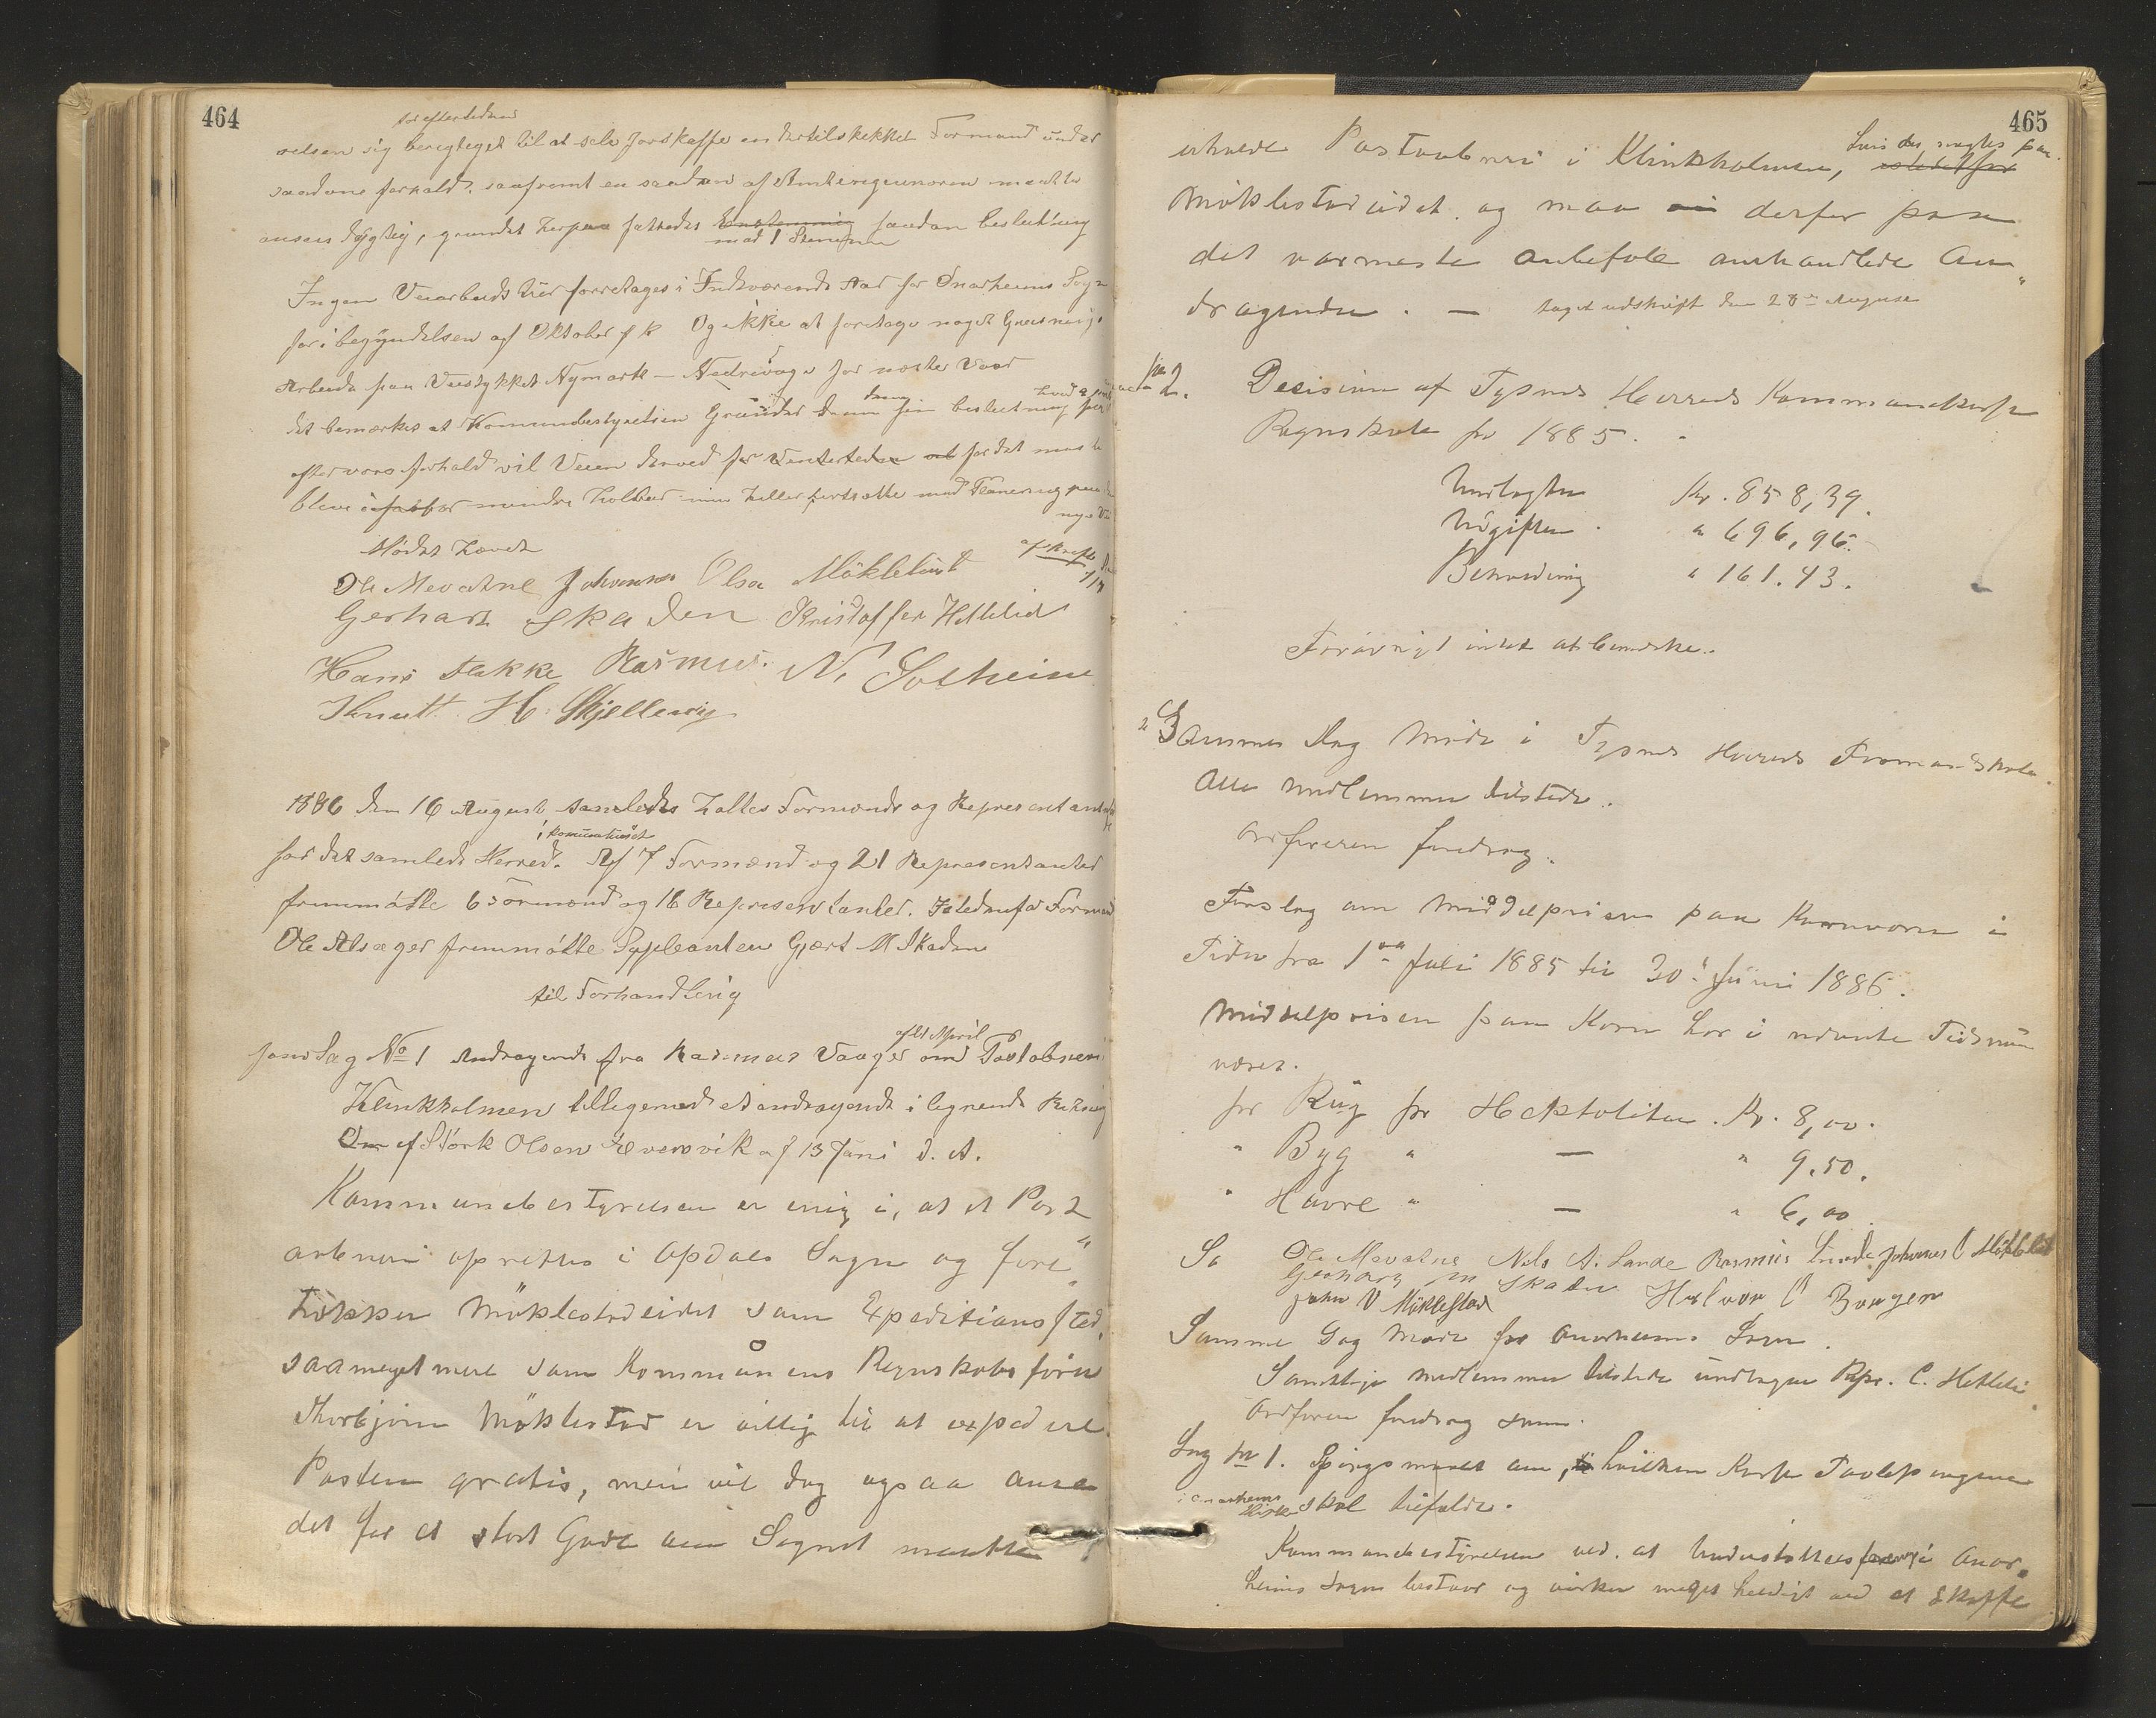 464
for eftertiden
relsen sig berigtiget til at selv forskaffe en dertilskikket Formand under
saadane forhold. saafremt en saadan af Amtsingeniøren maatte
ansees dygtig, grundet herpaa fattedes Enstemmig saadan beslutning
mod 1 Stemme
Ingen Veiarbeide her foretages i Indeværende Aar for Onarheims Sogn
før i begyndelsen af Oktober f k Og ikke at foretage noget
Arbeide paa Veistykket Nymark - Nedrevage før næste Vaar
det bemærkes at Kommunebestyrelsen Grunder denne sin beslutning
efter vore forhold vil Veien derved for Vintertiden for det meste
blive mindre holdbar
Mødet hævet
Ole Mevatne Johannes Olsen Møklebust
Gerhart Skaden Kristoffer Hetleli
Hans Flakke Rasmus N. Solheim
Knutt H. Skjellevig
1886 den 16 August samledes holtes Formænds og Representant
i komunehuset
for det samlede Herred. Af 7 Formænd og 21 Representanter
fremmøtte 6 Formænd og 16 Representanter. Istedenfor Formand
Ole Alsager fremmøtte Supleanten Gjert M Skaden
til Forhandling
af 21 April
som Sag No 1 Andragende fra Rasmus Vaage om Postabneri
Klinkholmen tilligemed et andragende i lignende Retning
af Størk Olsen Evensvik af 13 Juni d. A.
Kommunebestyrelsen er enig i, at et Post
aabneri oprettes i Opdals Sogn og fore"
trækker Møklestadeidet som Expeditionssted,
saameget mere som Kommunens Regnskabsfører
Thorbjørn Møklestad er villig til at expedere
Posten gratis, men vil dog ogsaa anse
det for et stort Gode om Sognet maatte
465
erholde Postaabneri i Klinkholmen, hvis der nægtes paa
Møklestadeidet og maa derfor paa
det varmeste anbefale omhandlede An"
dragender. — taget udskrift den 28de August
No 2. Decision af Tysnes Herreds Kommunekasse
Regnskab for 1885.
Indtægten Kr. 858,39.
Udgiften " 696,96.
Beholdning " 161.43.
Forøvrigt intet at bemærke.
Sammes Dag Møde i Tysnes Herreds Formandskab.
Alle medlemmer tilstede.
Ordføreren foredrog.
Forslag om Middelprisen paa Kornvarer i
Tiden fra 1ste Juli 1885 til 30te Juni 1886.
Middelprisen paa Korn har i nævnte Tidsrum
været.
for Rug pr Hektoliter. Kr. 8,00.
" Byg " — " 9.50.
" Havre " — " 6,00
Ole Mevatne Nels A. Lande Rasmus Lunde Johannes O Møkleb
Gerhart M Skaden Halvor O Borgen
John V Møklestad
Samme Dag Møde for Onarheims Sogn.
Samtlige medlemmer tilstede undtagen Rpr. C. Hetleli.
Ordføreren foredrog som.
Sag No 1. Spørgsmaal om, hvilken Kasse Tavlepengene
i Onarheims Kirke skal tilfalde.
Kommunebestyrelsen ved. at Understøttelsesforening i Onar-
heims Sogn bestaar og virker meget heldigt ved at skaffe